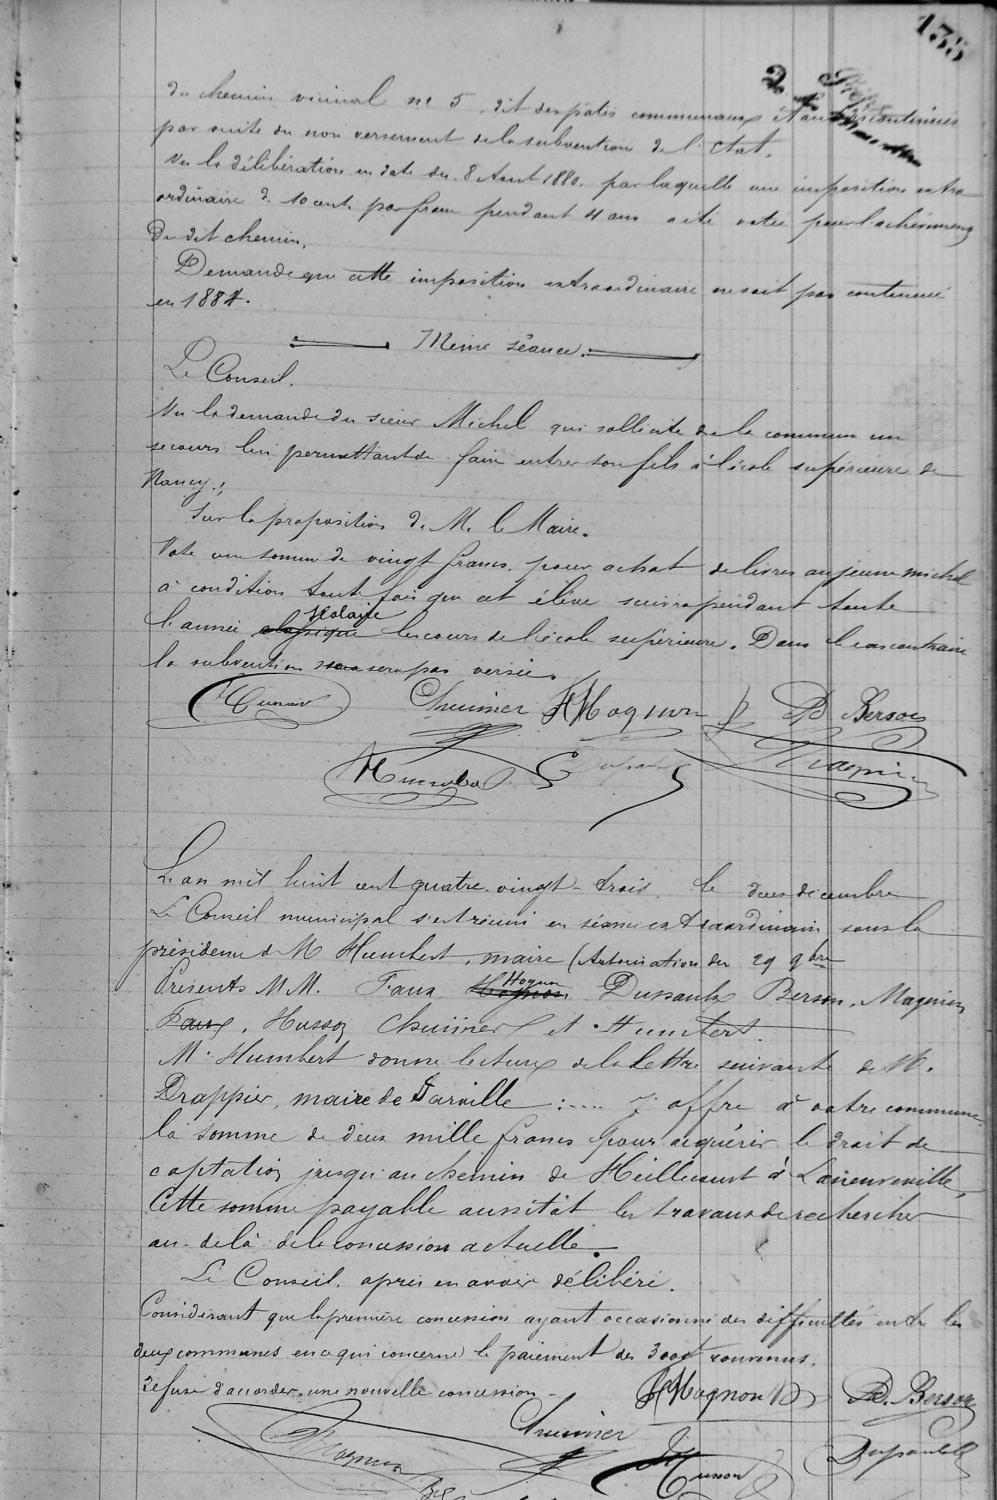 135
du chemin vicinal nº 5, dit des patis communaux étant discontinués
par suite du non versement de la subvention de l'état.
Vu la délibération en date du 8 Aout 1880, par laquelle une imposition extra
ordinaire de 10 cent. par franc pendant 4 ans a été votée pour l'achèvement
du dit chemin.
Demande que cette imposition extraordinaire ne soit pas continuée
en 1884.
Même séance.
Le Conseil.
Vu la demande du sieur Michel qui sollicite de la commune un
secours lui permettant de faire entrer son fils à l'école supérieure de
Nancy;
Sur la proposition de M. le Maire.
Vote une somme de vingt francs, pour achat de livres au jeune michel
à condition toute fois que cet élève suivra pendant toute
l'année scolaire les cours de l'école supérieure. Dans le cas contraire
la subvention ne sera pas versée.
Chuinier HHognon D Berson
Magnien
L'an mil huit cent quatre-vingt-trois, le deux décembre
Le Conseil municipal s'est réuni en séance extraordinaire sous la
présidence de M Humbert, maire (Autorisation du 29 9bre
Présents MM. Faux Hognon Dussaulx Berson, Magnien
Faux, Husson Chuinier et Humbert.
Mr Humbert donne lecture de la lettre suivante de M.
Drappier, maire de Jarville :.... J'offre à votre commune
la somme de deux mille francs pour acquérir le droit de
captation jusqu'au chemin de Heillecourt à Laneuveville,
Cette somme payable aussitôt les travaux de recherches
au-delà de la concession actuelle.
Le Conseil, après en avoir délibéré.
Considérant que la première concession ayant occasionné des difficultés entre les
deux communes en ce qui concerne le paiement des 3000f convenus.
Refuse d'accorder une nouvelle concession.
HHognon D. Berson
Chuinier
Magnien Husson Dussaulx